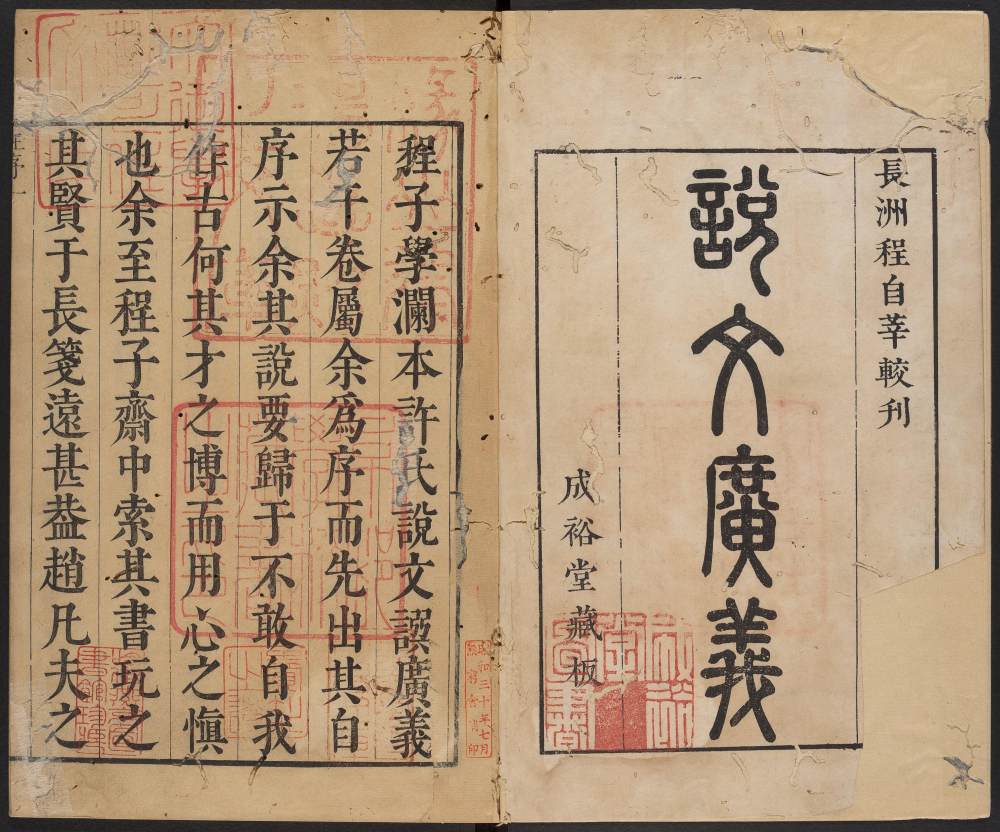 長洲程自莘較刊
說文廣義
成裕堂藏板
程子學瀾本許氏說文譔廣義
若干卷屬余爲序而先出其自
序示余其說要歸于不敢自我
作古何其才之博而用心之愼
也余至程子齋中索其書玩之
其賢于長箋遠甚葢趙凡夫之